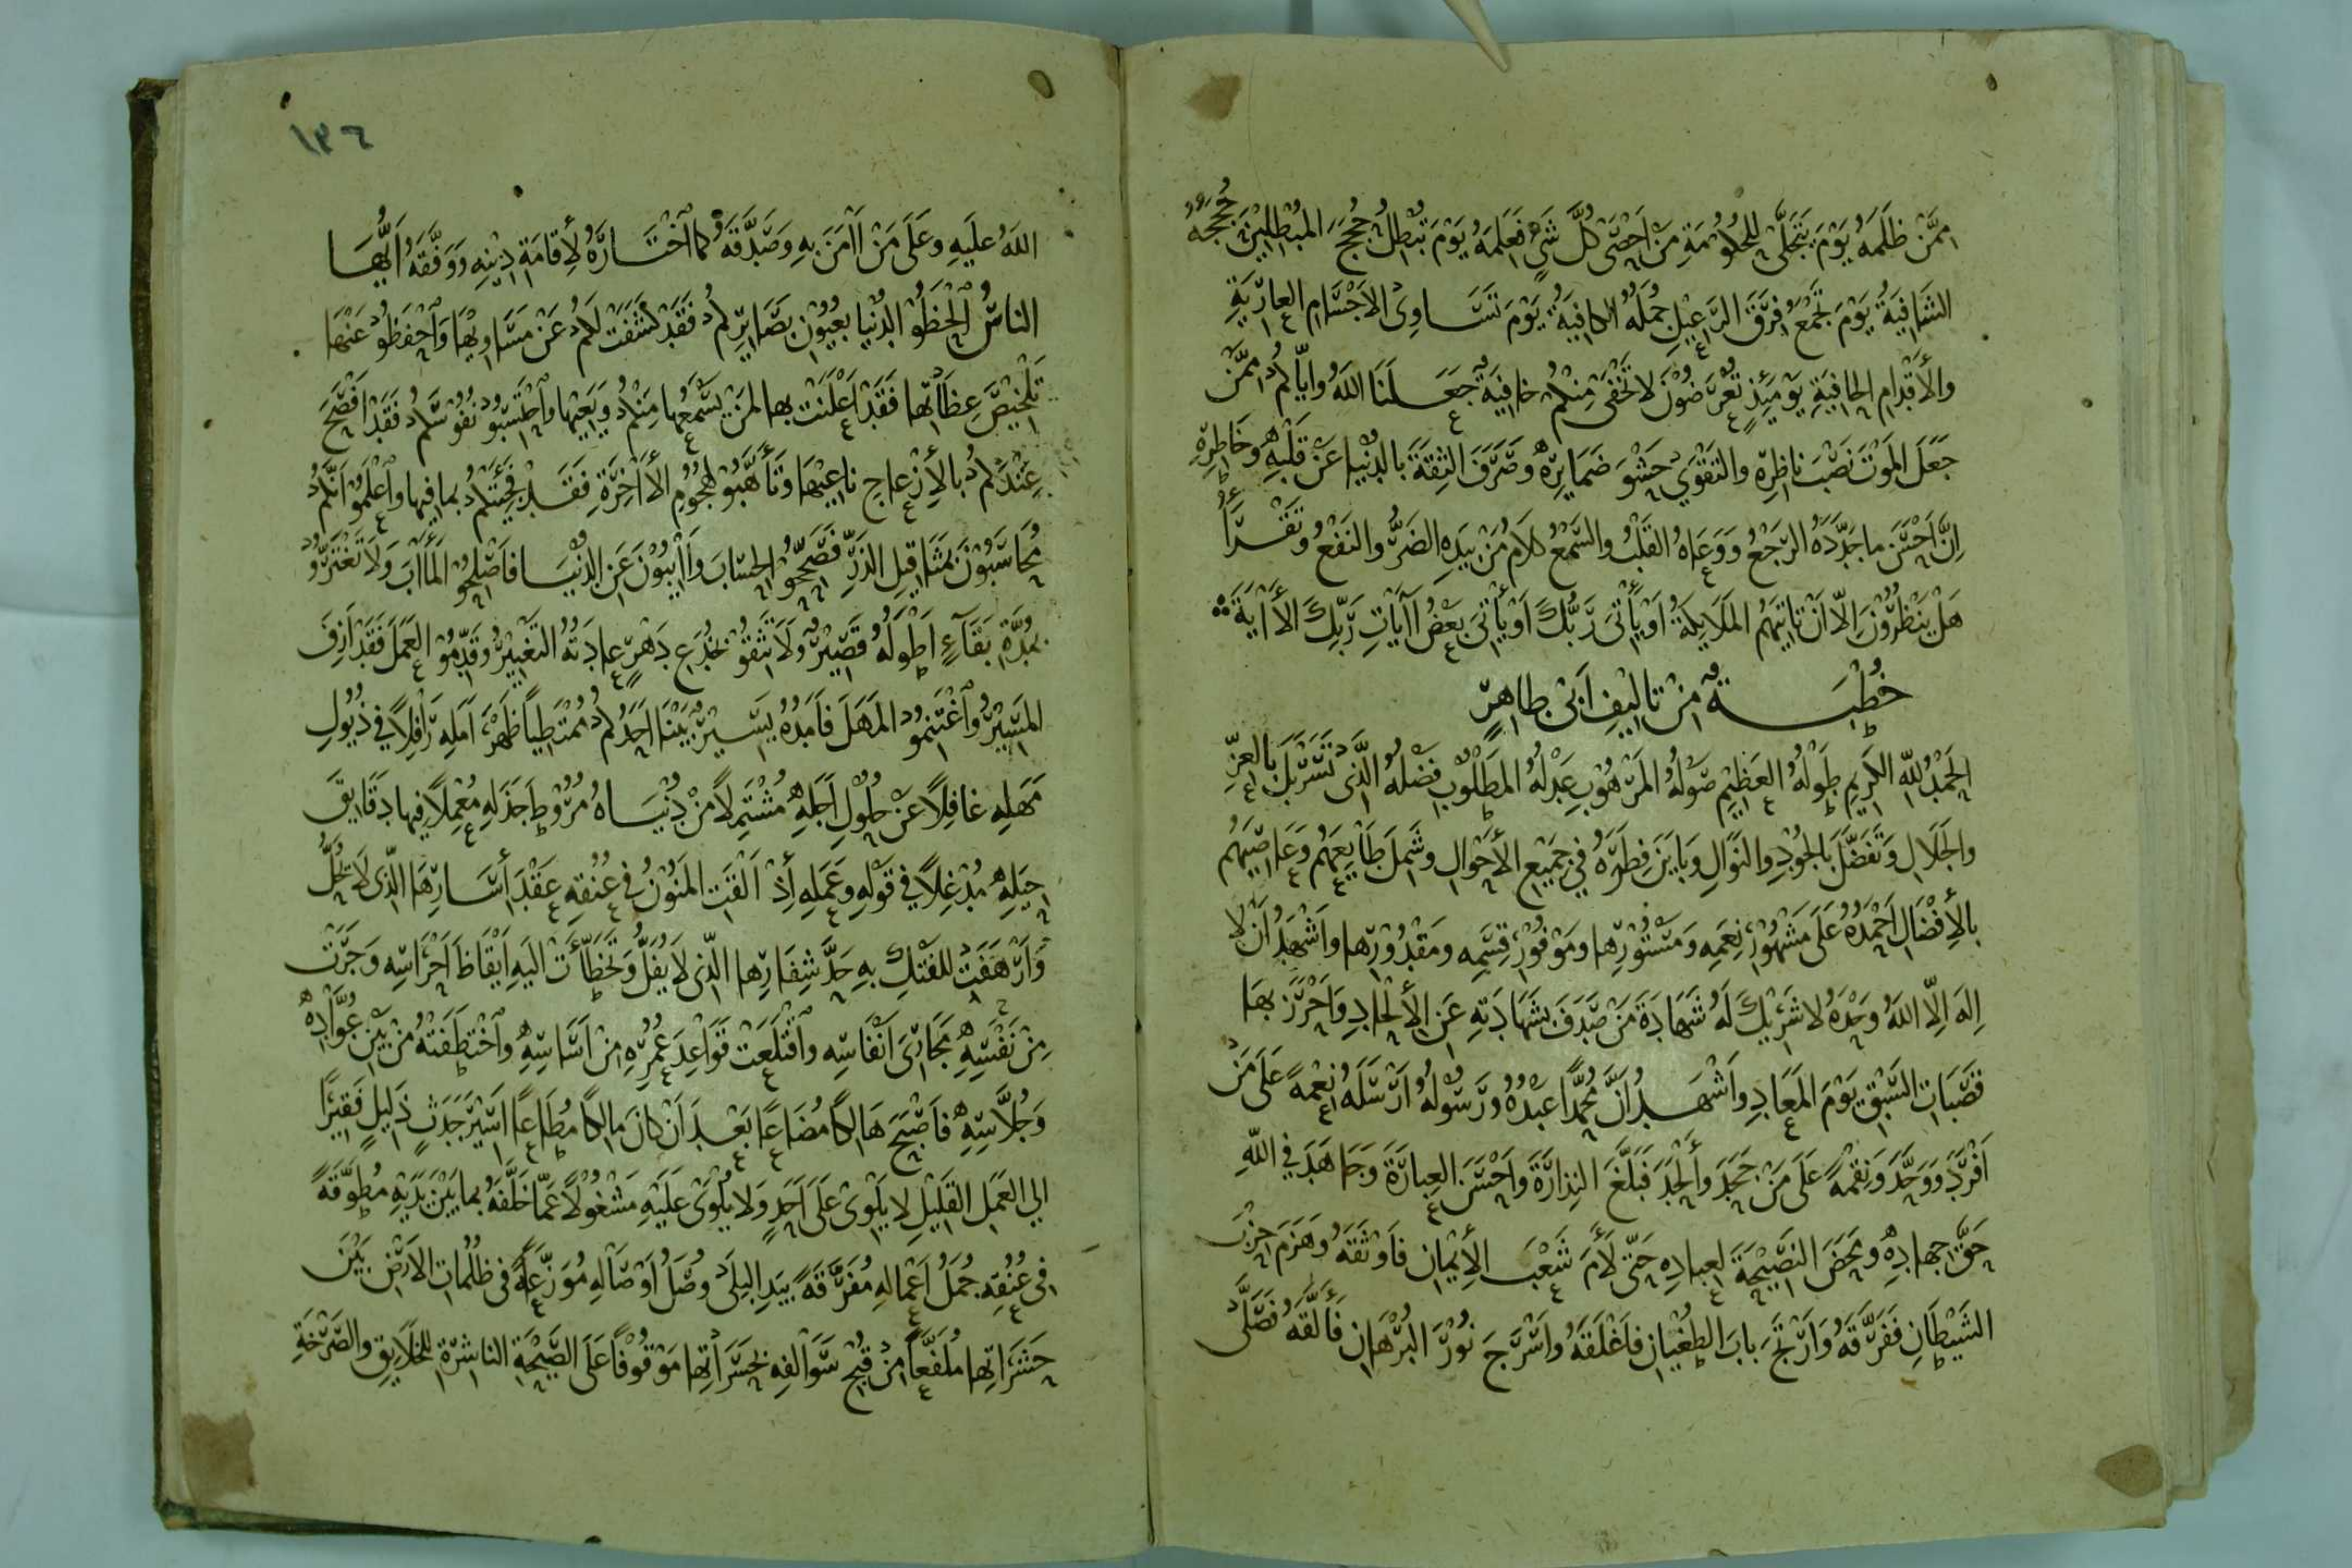 مِمَّنْ ظَلَمَهُ يَوْمَ يَتَجَلَّى لِلْحُكُوْمَةِ مَنْ اَحْصَى كُلَّ شَىْءٍ فَعَلِمَهُ يَوْمَ تُبْطِلُ حُجَجَ المُبْطِلِيْنَ حُجَجُهُ
الشَافِيَةُ يَوْمَ تَجْمَعُ فِرَقَ الرَّعِيْلِ جُمَلُهُ الكافِيَةُ يَوْمَ تَسَاوِى الاَجْسَامِ العارِيَةِ
والأَقْدِامِ الحافِيَةِ يَوْمَئِذٍ تُعْرَضُوْنَ لا تَخْفَى مِنْكُمْ خافِيَةٌ جَعَلَنَا اللهُ وايّاكُمْ مِمَّنْ
جَعَلَ المَوْتَ نَصْبَ ناظِرِهِ والتَقْوَى حَشْوَ ضَمايِرِهِ وصَرَفَ الثِقَةَ بالدُنْيا عَنْ قَلْبِهِ وخَاطِرِهِ
اِنَّ اَحْسَنَ ما جَدَّدَهُ الرَجْعُ وَوَعاهُ القَلْبُ والسَمْعُ كَلامُ مَنْ بِيَدِهِ الضَرُّ والنَفْعُ وتَقْرَأُ
هَلْ يَنْظُرُوْنَ اِلّا اَنْ تَاتِيَهُمُ المَلَايِكَةُ اَوْ يَأْتِىَ رَبُّكَ اَوْ يَأْتِىَ بَعْضُ اٰيَاتِ رَبِّكَ الأٰيَةَ
خُطْبَةٌ مِنْ تالِيْفِ اَبِىْ طاهِرٍ
الحَمْدُ للهِ الكَرِيمِ طَوْلُهُ العَظِيْمِ صَوْلُهُ المَرْهُوْبِ عَدْلُهُ المَطْلُوْبِ فَضْلُهُ الَّذِى تَسَرْبَلَ بالعِزِّ
والجَلَالِ وَتَفَضَّلَ بالجُوْدِ والنَوَالِ وَبَايَنَ فِطَرَهُ فِي جَمِيْعِ الأَحْوَالِ وشَمِلَ طَايِعَهُم وَعَاصِيَهُم
بالأِفْضَالِ اَحْمَدُهُ عَلَى مَشْهُوْرِ نِعَمِهِ وَمَسْتُوْرِها ومَوْفُوْرِ قِسَمِهِ ومَقْدُوْرِها واَشْهَدُ اَنْ لا
اِلهَ اِلّا اللهُ وَحْدَهُ لا شَرِيْكَ لَهُ شَهَادَةَ مَنْ صَدَفَ بِشَهَادَتِهِ عَنِ الأِلْحادِ وَاَحْرَزَ بِهَا
قَصَبَاتِ السَبْقِ يَوْمَ المَعَادِ واَشْهَدُ اَنَّ مُحَمَّداً عَبْدُهُ ورَسُوْلُهُ اَرْسَلَهُ نِعْمَةً عَلَى مَنْ
اَفْرَدَ وَوَحَّدَ وَنِقْمَةً عَلَى مَنْ جَحَدَ وأَلْحَدَ فَبَلَّغَ النِذارَةَ واَحْسَنَ العِبارَةَ وَجَاهَدَ فِي اللهِ
حَقَّ جِهادِهِ ومَحَضَ النَصِيْحَةَ لِعِبادِهِ حَتّى لَأَمَ شَعْبَ الأِيْمانِ فَاَوْثَقَهُ وَهَزَمَ حِزْبَ
الشَيْطَانِ فَفَرَّقَهُ وَاَرْتَجَ بابَ الطُغْيانِ فاَغْلَقَهُ واَسْرَجَ نُوْرَ البُرْهَانِ فَأَلَّقَهُ فَصَلَّى
١٣٦
اللهُ عَلَيهِ وعَلَى مَنْ اٰمَنَ بِهِ وَصَدَّقَهُ كما اَخْتَارَهُ لأِقامَةِ دِيْنِهِ وَوَفَّقَهُ اَيُّهَا
الناسُ اَلْحَظُوْا الدُنْيا بِعُيُوْنِ بَصَايِرِكُمْ فَقَدْ كَشَفَتْ لَكُمْ عَنْ مَسَاوِيْهَا وَاَحْفَظُوْ عَنْهَا
تَلْخِيْصَ عِظَاتِها فَقَدْ اَعْلَنَتْ بها لِمَنْ يَسْمَعُها مِنْكُمْ وَيَعِيْها واَحْتَسِبُوْ نُفُوْسَكُمْ فَقَدْ اَفْصَحَ
عِنْدَكُمْ بالأِزْعاجِ ناعِيْهَا وَتَأَهَّبُوْ لِهُجُوْمِ الأٰخِرَةِ فَقَدْ فَجِئَتْكُمْ بما فِيها واَعْلَمُوْ اَنَّكُمْ
مُحَاسَبُوْنَ بِمَثَاقِيْلِ الذَرِّ فَصَحِّحُوْ الحِسَابَ وَاٰيِبُوْنَ عَنِ الدُنْيَا فَاَصْلِحُوْ المَأٰبَ وَلَا تَغْتَرُّوْ
بِمُدَّةِ بَقَآءٍ اَطْوَلُهُ قَصِيْرٌ ولَا تَثِقُوْ بِخُدَعِ دَهْرٍ عادَتُهُ التَغْيِيْرُ وقَدِّمُوْ العَمَلَ فَقَدْ اَزِفَ
المَسِيْرُ واَغْتَنِمُوْ المَهَلَ فَاَمَدُهُ يَسِيْرٌ بَيْنَا اَحَدُكُمْ مُمْتَطِياً ظَهْرَ اَمَلِهِ رَافِلاً في ذُيُولِ
مَهَلِهِ غافِلاً عَنْ حُلُوْلِ اَجَلِهِ مُشْتَمِلاً مِنْ دُنْيَاهُ مُرُوْطَ جَذَلِهِ مُعْمِلاً فِيها دَقَايِقَ
حِيَلِهِ مُدْغِلاً في قَوْلِهِ وعَمَلِهِ إِذْ اَلْقَتِ المَنُوْنُ فِي عُنُقِهِ عَقْدَ أَسَارِهَا الّذِى لَا يُحَلُّ
وَاَرْهَفَتْ لِلفَتْكِ بِهِ حَدَّ شِفَارِها الّذِى لا يُفَلُّ وَتَخَطَّأَتْ الَيهِ اَيْقَاظَ اَحْرَاسِهِ وَجَرَتْ
مِنْ نَفْسِهِ مَجَارِىَ اَنْفَاسِهِ واَقْتَلَعَتْ قَوَاعِدَ عُمُرِهِ مِنْ اَسَاسِهِ واَخْتَطَفَتْهُ مِنْ بَيْنِ عُوَّادِهِ
وَجُلَّاسِهِ فاَصْبَحَ هَالِكاً مُضَاعاً بَعْدَ اَنْ كانَ مالِكاً مُطاعاً اَسِيْرَ جَدَثٍ ذَلِيلٍ فَقِيْراً
الي العَمَلِ القَلِيْلِ لا يَلْوِىْ عَلَى اَحَدٍ وَلا يُلْوَىْ عَلَيْهِ مَشْغُوْلاً عَمّا خَلَّفَهُ بما بَيْنَ يَدَيْهِ مُطَوَّقَةً
فِى عُنُقِهِ جُمَلُ اَعْمَالِهِ مُفَرَّقَةً بِيَدِ البِلَى وُصَلُ اَوْصَالِهِ مُوَزَّعَةً فى ظُلُماتِ الاَرْضِ بَيْنَ
حَشَرَاتِها مُلَفَّعاً مِنْ قَبِيْحِ سَوَالِفِهِ بِحَسَرَاتِها مَوْقُوْفاً عَلَى الصَيْحَةِ الناشِرَةِ لِلخَلَايِقِ والصَرْخَةِ